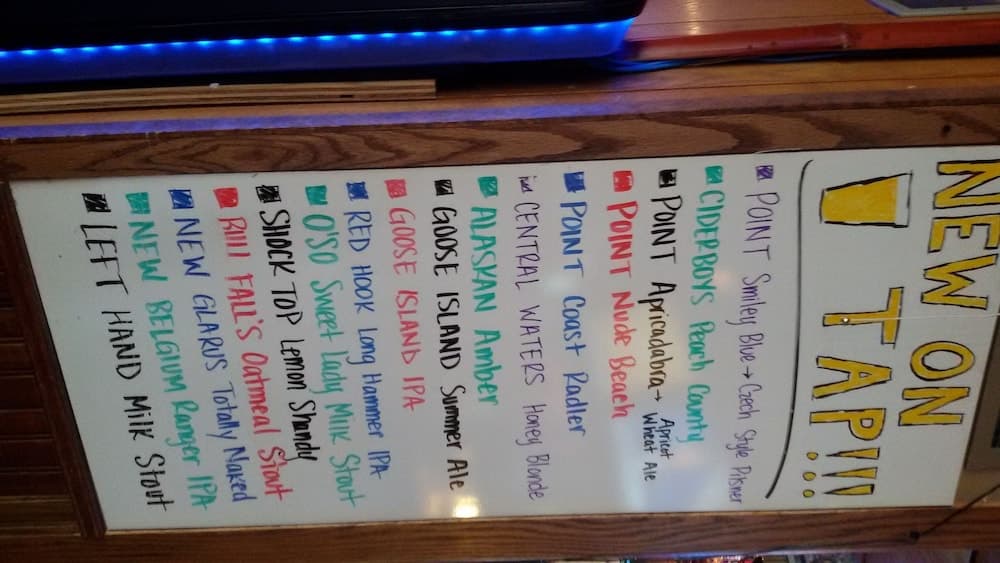 NEW ON
TAP!!!
POINT Smiley Blue → Czech Style Pilsner
CIDERBOYS Peach County
POINT Apricadabra → Apricot
Wheat Ale
POINT Nude Beach
POINT Coast Radler
CENTRAL WATERS Honey Blonde
ALASKAN Amber
GOOSE ISLAND Summer Ale
GOOSE ISLAND IPA
RED HOOK Long Hammer IPA
O'SO Sweet Lady Milk Stout
SHOCK TOP Lemon Shandy
Bull FALL'S Oatmeal Stout
NEW GLARUS Totally Naked
NEW BELGIUM Ranger IPA
LEFT HAND Milk Stout